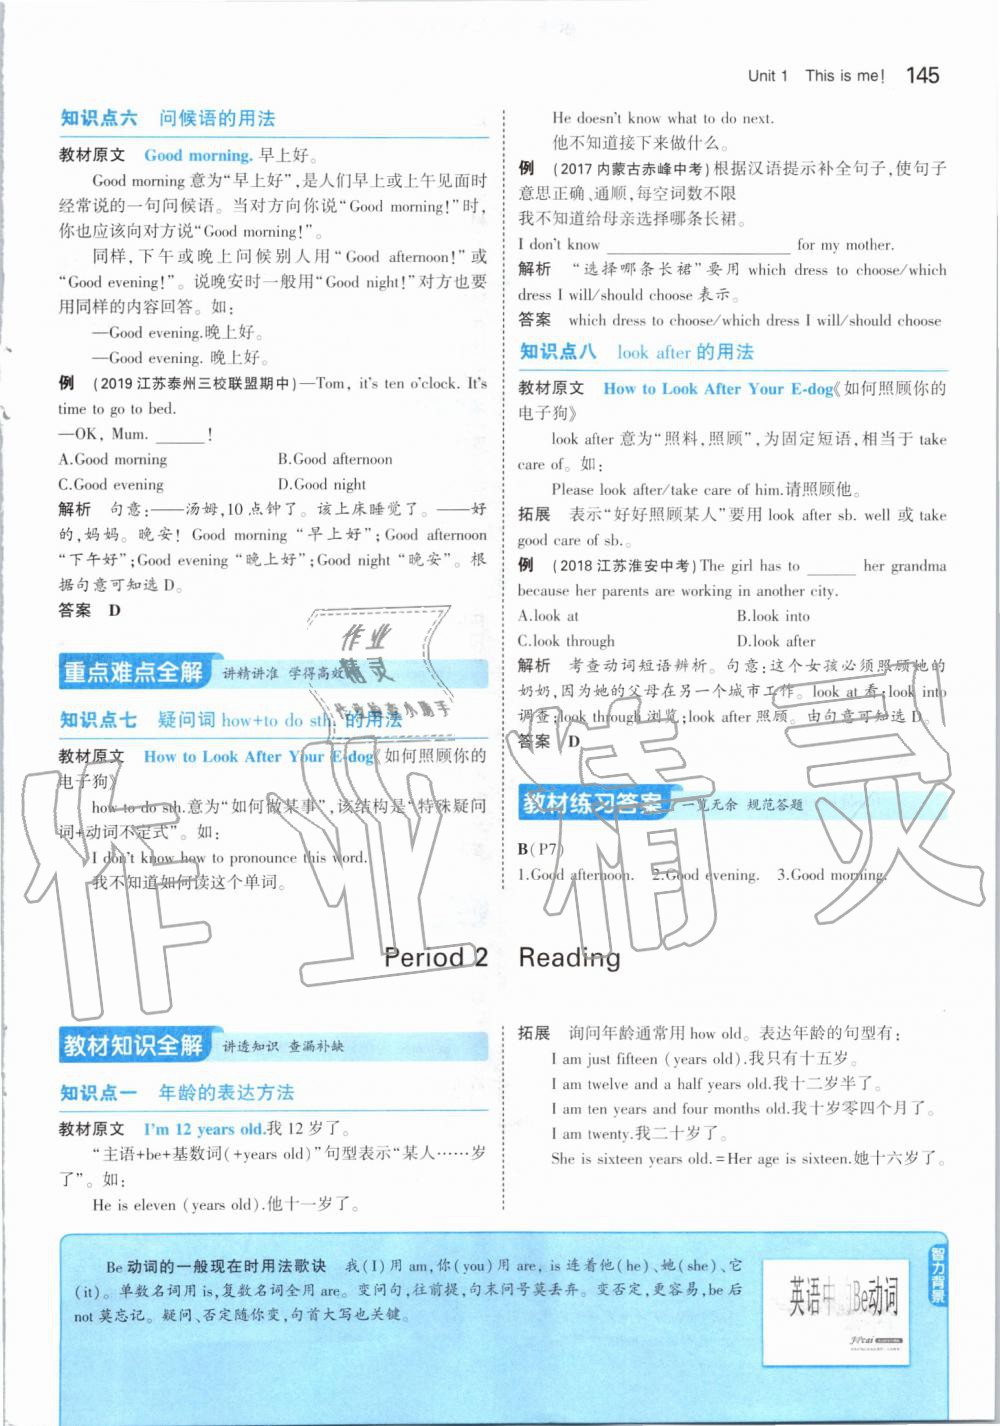 Unit 1 This is me! 145
知识点六 问候语的用法
教材原文 Good morning. 早上好。
Good morning 意为“早上好”,是人们早上或上午见面时
经常说的一句问候语。当对方向你说“Good morning!”时,
你也应该向对方说“Good morning!”。
同样,下午或晚上问候别人用“Good afternoon!”或
“Good evening!”。说晚安时一般用“Good night!”对方也要
用同样的内容回答。如:
—Good evening.晚上好。
—Good evening. 晚上好。
例 (2019江苏泰州三校联盟期中)—Tom, it's ten o'clock. It's
time to go to bed.
—OK, Mum. ______!
A.Good morning B.Good afternoon
C.Good evening D.Good night
解析 句意:——汤姆,10点钟了。该上床睡觉了。——好
的,妈妈。晚安! Good morning “早上好”; Good afternoon
“下午好”;Good evening “晚上好”;Good night “晚安”。根
据句意可知选 D。
答案 D
重点难点全解 讲精讲准 学得高效
知识点七 疑问词 how+to do sth. 的用法
教材原文 How to Look After Your E-dog《如何照顾你的
电子狗》
how to do sth.意为“如何做某事”,该结构是“特殊疑问
词+动词不定式”。如:
I don't know how to pronounce this word.
我不知道如何读这个单词。
He doesn't know what to do next.
他不知道接下来做什么。
例 (2017内蒙古赤峰中考)根据汉语提示补全句子,使句子
意思正确、通顺,每空词数不限
我不知道给母亲选择哪条长裙。
I don't know ______ for my mother.
解析 “选择哪条长裙”要用 which dress to choose/which
dress I will/should choose 表示。
答案 which dress to choose/which dress I will/should choose
知识点八 look after 的用法
教材原文 How to Look After Your E-dog《如何照顾你的
电子狗》
look after 意为“照料,照顾”,为固定短语,相当于 take
care of。如:
Please look after/take care of him.请照顾他。
拓展 表示“好好照顾某人”要用 look after sb. well 或 take
good care of sb.。
例 (2018江苏淮安中考)The girl has to ______ her grandma
because her parents are working in another city.
A.look at B.look into
C.look through D.look after
解析 考查动词短语辨析。句意:这个女孩必须照顾她的
奶奶,因为她的父母在另一个城市工作。look at 看;look into
调查;look through 浏览;look after 照顾。由句意可知选 D。
答案 D
教材练习答案 一览无余 规范答题
B(P7)
1.Good afternoon. 2.Good evening. 3.Good morning.
Period 2 Reading
教材知识全解 讲透知识 查漏补缺
知识点一 年龄的表达方法
教材原文 I'm 12 years old.我12岁了。
“主语+be+基数词(+years old)”句型表示“某人……岁
了”。如:
He is eleven (years old).他十一岁了。
拓展 询问年龄通常用 how old。表达年龄的句型有:
I am just fifteen (years old).我只有十五岁。
I am twelve and a half years old.我十二岁半了。
I am ten years and four months old.我十岁零四个月了。
I am twenty.我二十岁了。
She is sixteen years old.=Her age is sixteen.她十六岁了。
Be 动词的一般现在时用法歌诀 我(I)用 am,你(you)用 are, is 连着他(he)、她(she)、它
(it)。单数名词用 is,复数名词全用 are。变问句,往前提,句末问号莫丢弃。变否定,更容易,be 后
not 莫忘记。疑问、否定随你变,句首大写也关键。
智力背景
英语中的Be动词
作业精灵
作业精灵
作业检查小助手